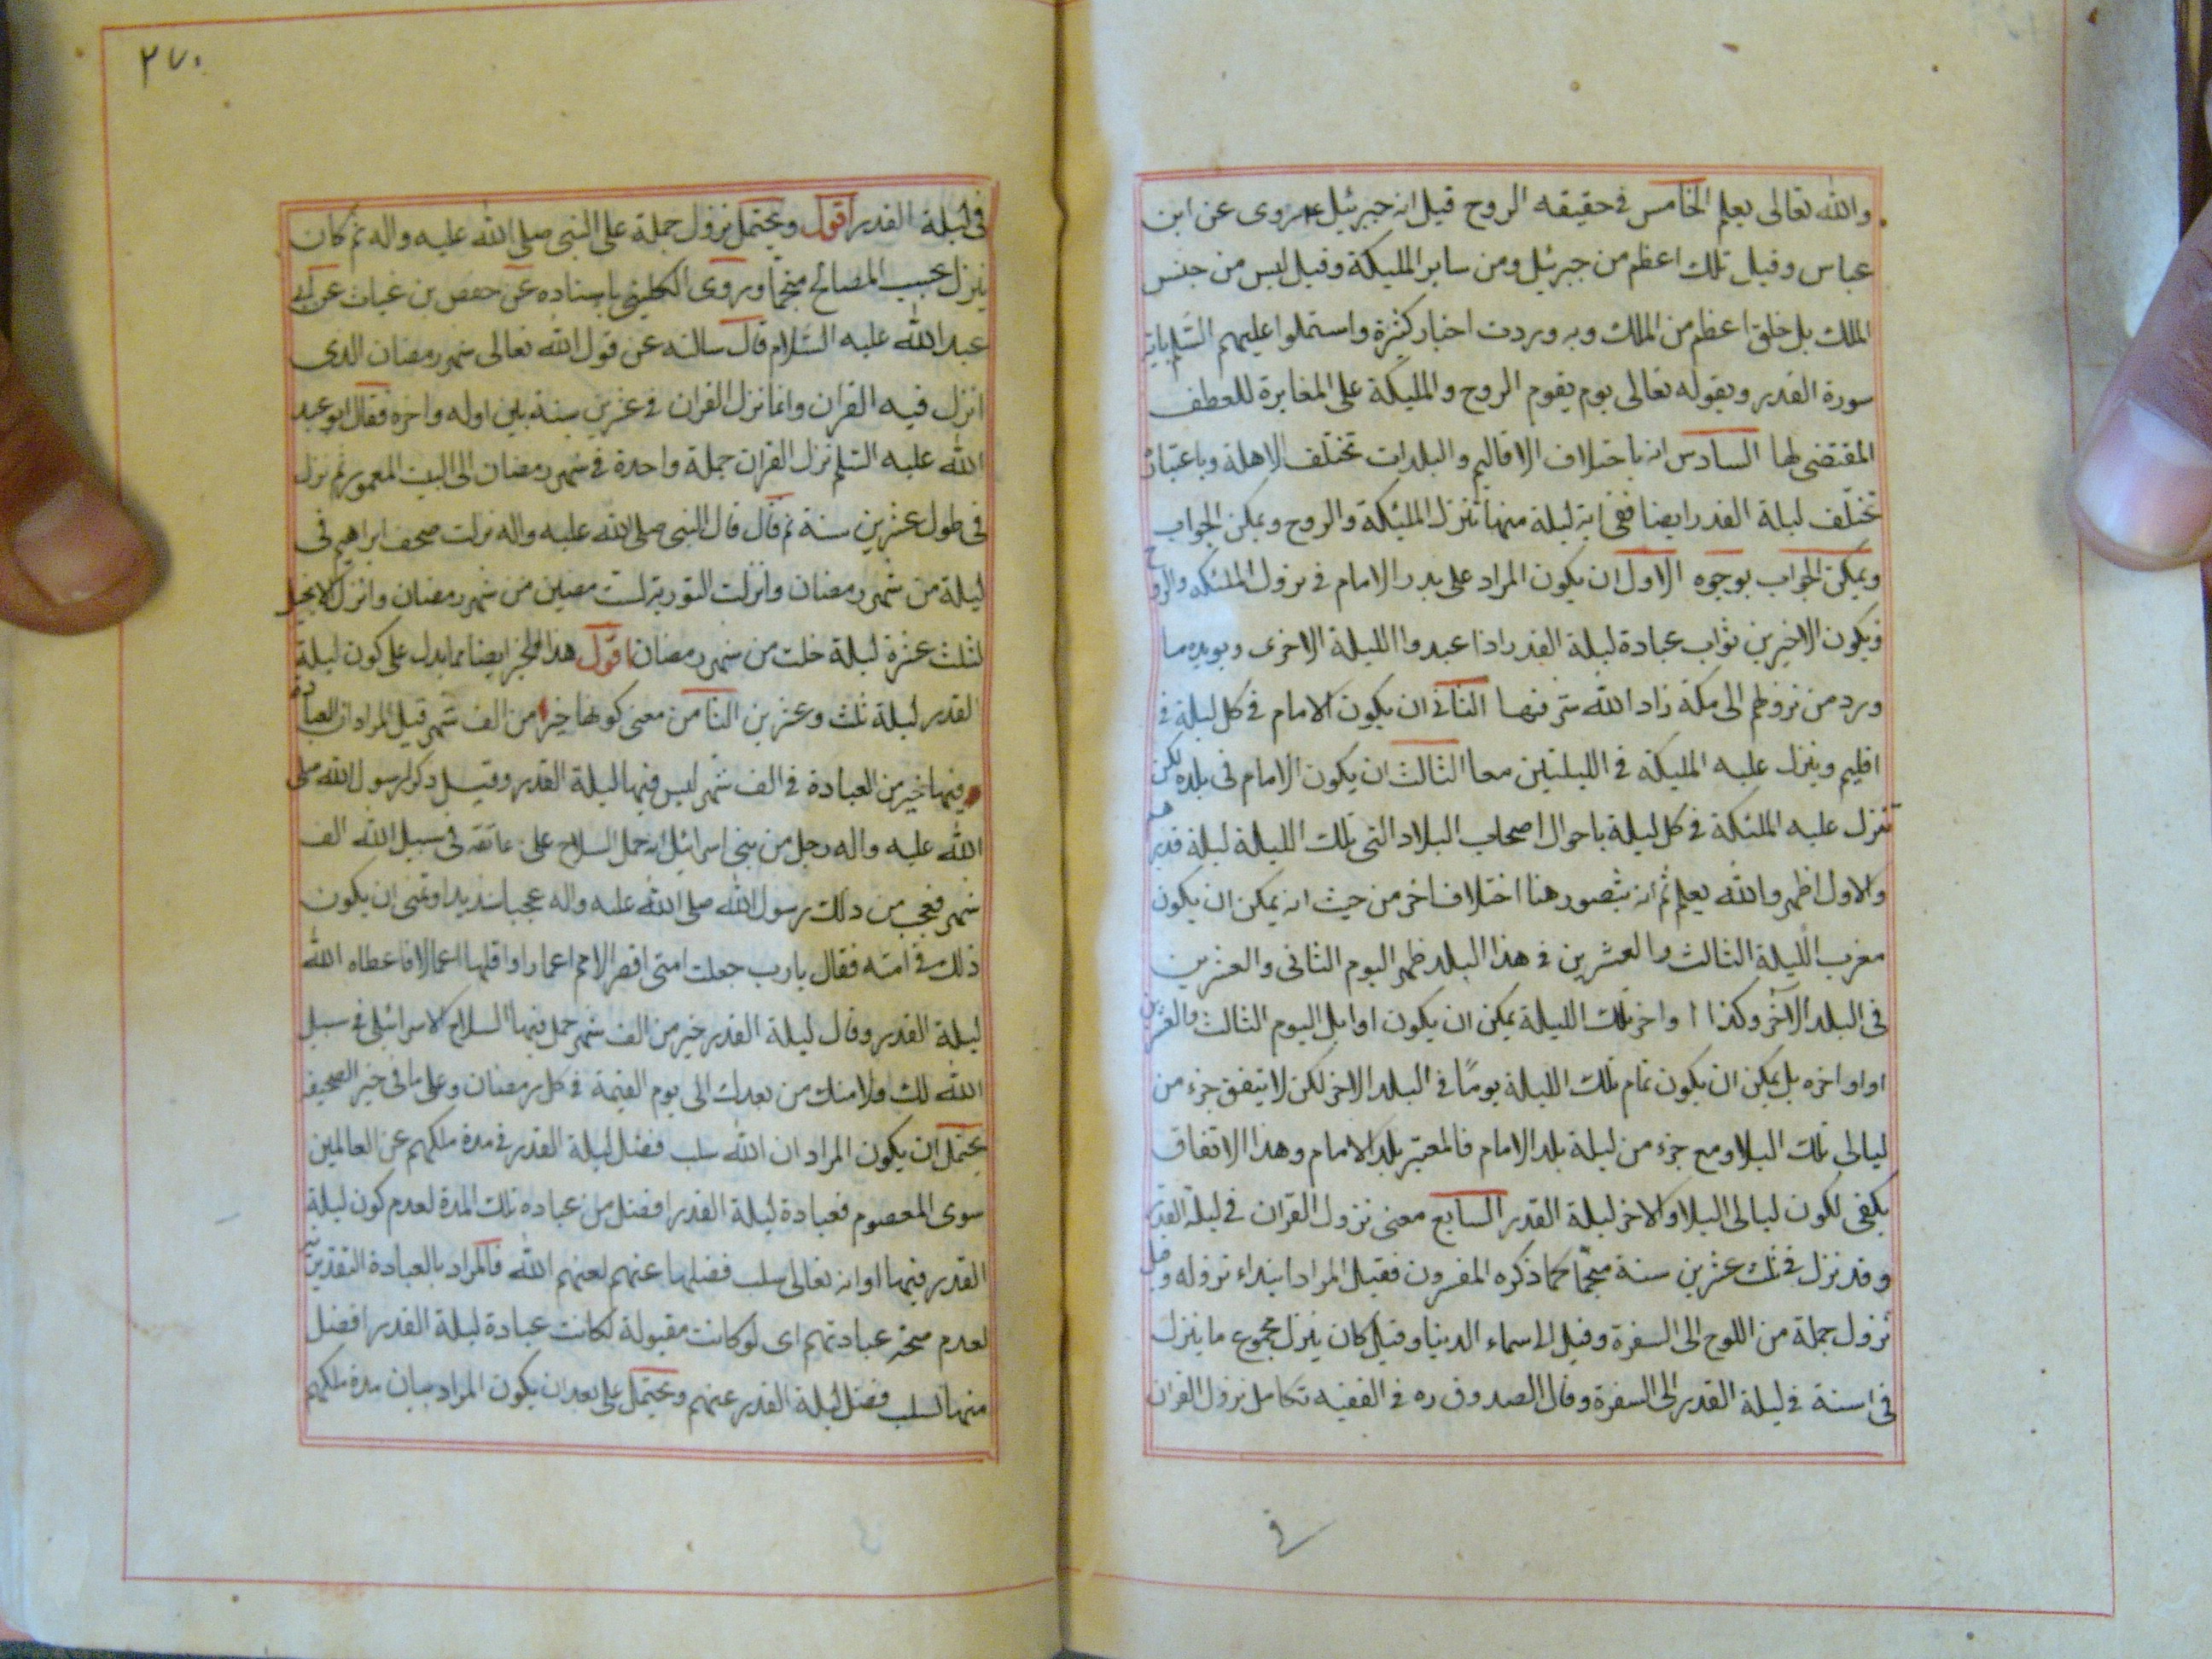 والله تعالى يعلم الخامس في حقيقه الروح قيل انه جبرئيل ع روى عن ابن
عباس وقيل تلك اعظم من جبرئيل ومن ساير المليكة وقيل ليس من جنس
الملك بل خلق اعظم من الملك وبه وردت اخبار كثيرة واستدلوا عليهم السلم باية
سورة القدر وبقوله تعالى يوم يقوم الروح والمليكة على المغايرة للعطف
المقتضى لها السادس انه باختلاف الاقاليم والبلدان تختلف الاهلة وباعتباره
تختلف ليلة القدر ايضا ففى اية ليلة منها تنزل المليكة والروح ويمكن الجواب
ويمكن الجواب بوجوه الاول ان يكون المراد على بدر الامام في نزول الملئكة والروح
ويكون الاخيرين ثواب عبادة ليلة القدر اذا عبدوا الليلة الاخرى ويويده ما
ورد من نزولهم الى مكة زاد الله شرفها الثانى ان يكون الامام في كل ليلة في
اقليم وينزل عليه المليكة في الليلتين معا الثالث ان يكون الامام في بلده لكن
تنزل عليه الملئكة في كل ليلة باحوال اصحاب البلاد التى تلك الليلة ليلة قدرهم
والاول اظهر والله يعلم ثم انه يتصور هنا اختلاف اخر من حيث انه يمكن ان يكون
مغرب الليلة الثالث والعشرين في هذا البلد ظهر اليوم الثانى والعشرين
فى البلد الاخر وكذا ا واخر تلك الليلة يمكن ان يكون اوايل اليوم الثالث والعشرين
او اواخره بل يمكن ان يكون تمام تلك الليلة يوما في البلد الاخر لكن لا يتفق جزء من
ليالى تلك البلاد مع جزء من ليلة بلد الامام فالمعتبر بلد الامام وهذا الاتفاق
يكفى لكون ليالى البلاد الاخر ليلة القدر السابع معنى نزول القران في ليلة القدر
وقد نزل في ثلث عشرين سنة منجما كما ذكره المفسرون فقيل المراد ابتداء نزوله وقيل
نزول جملة من اللوح الى السفرة وقيل الى سماء الدنيا وقيل كان ينزل مجموع ما ينزل
فى اسنة في ليلة القدر الى السفرة وقال الصدوق ره في الفقيه تكامل نزول القران
في
٢٧٠
فى ليلة القدر اقول ويحتمل نزول جملة على النبى صلى الله عليه واله ثم كان
ينزل بحسب المصالح منجما وروى الكلينى باسناده عن حفص بن غياث عن ابى
عبد الله عليه السلام قال سالته عن قول الله تعالى شهر رمضان الذى
انزل فيه القران وانما نزل القران في عشرين سنة بين اوله واخره فقال ابو عبد
الله عليه السلم نزل القران جملة واحدة في شهر رمضان الى البيت المعمور ثم نزل
فى طول عشرين سنة ثم قال قال النبى صلى الله عليه واله نزلت صحف ابراهيم فى
ليلة من شهر رمضان وانزلت التورية لست مضين من شهر رمضان وانزل الانجيل
لثلث عشرة ليلة خلت من شهر رمضان اقول هذا الخبر ايضا مما يدل على كون ليلة
القدر ليلة ثلث وعشرين الثامن معنى كونها خيرا من الف شهر قيل المراد ان العبادة
فيها خير من العبادة في الف شهر ليس فيها ليلة القدر وقيل ذكر لرسول الله صلى
الله عليه واله رجل من بنى اسرائيل انه حمل السلاح على عاتقه فى سبيل الله الف
شهر فعجب من ذلك رسول الله صلى الله عليه واله عجبا شديدا وتمنى ان يكون
ذلك في امته فقال يارب جعلت امتى اقصر الامم اعمارا واقلها اعمالا فاعطاه الله
ليلة القدر وقال ليلة القدر خير من الف شهر حمل فيها السلاح الاسرائيلى في سبيل
الله لك ولامتك من بعدك الى يوم القيمة في كل رمضان وعلى ما فى خبر الصحيفه
يحتمل ان يكون المراد ان الله سلب فضل ليلة القدر في مدة ملكهم عن العالمين
سوى المعصوم فعبادة ليلة القدر افضل من عباده تلك المدة لعدم كون ليلة
القدر فيها او انه تعالى سلب فضلها عنهم لعنهم الله فالمراد بالعبادة التقديرية
لعدم صحة عبادتهم اى لو كانت مقبولة لكانت عبادة ليلة القدر افضل
منها لسلب فضل ليلة القدر عنهم ويحتمل على بعد ان يكون المراد بيان مدة ملكهم